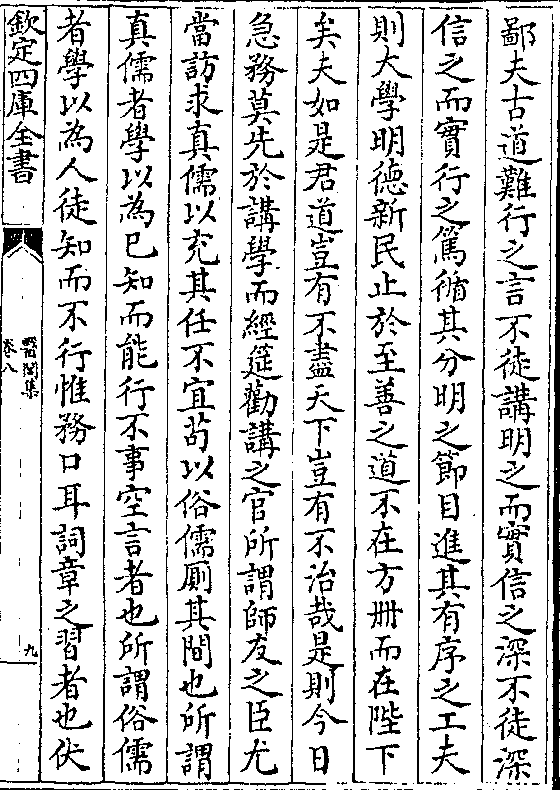 鄙夫古道難行之言不徒講明之而實信之深不徒深
信之而實行之篤循其分明之節目進其有序之工夫
則大學明徳新民止於至善之道不在方冊而在陛下
矣夫如是君道豈有不盡天下豈有不治哉是則今日
急務莫先於講學而經筵勸講之官所謂師友之臣尤
當訪求真儒以充其任不宜茍以俗儒厠其間也所謂
真儒者學以為已知而能行不事空言者也所謂俗儒
者學以為人徒知而不行惟務口耳詞章之習者也伏
欽定四庫全書
醫閭集
卷八
九